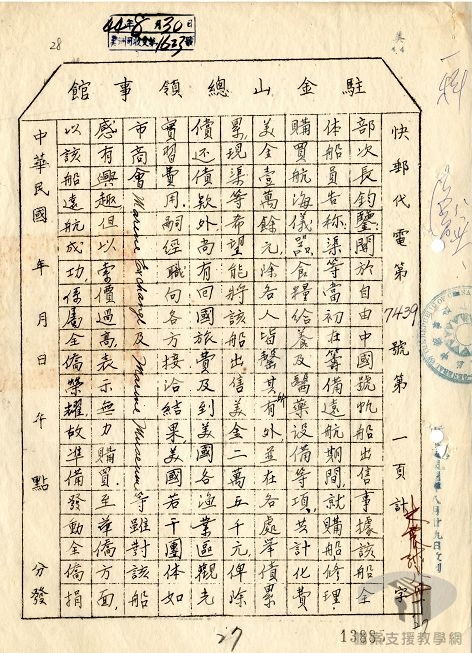 44年8月30日
1623號
28
美
4.4
駐金山總領事館
快郵代電第7439號第一頁計 字
部次長鈞鑒關於自由中國號帆船出售事據該船全
体船員告称渠等當初在籌備遠航期間就購船修理
購買航海儀器食糧給養及醫藥設備等項共計化費
美金壹萬餘元除各人皆罄其所有外並在各處举債累
累現渠等希望能將該船出售美金二萬五千元俾除
償还債欵外尚有回國旅費及到美國各漁業區觀光
實習費用嗣經職向各方接洽結果美國若干團体如
市商會Marine Exchange及Marine Museum等雖對該船
感有興趣但以索價過高表示無力購買至華僑方面
以該船遠航成功係屬全僑榮耀故準備發動全僑捐
中華民國 年 月 日 午 點 分發
27